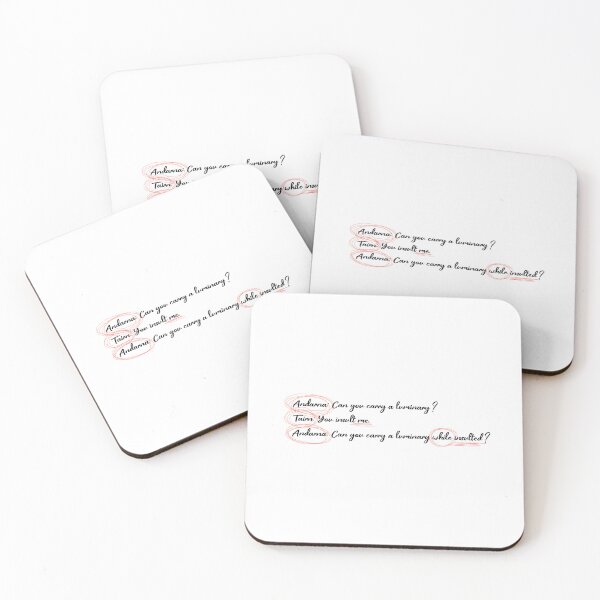 Andarna: Can you a luminary?
Tairn: You
while
Andarna: Can you carry a luminary?
Tairn: You insult me.
Andarna: Can you carry a luminary while insulted?
Andarna: Can you carry a luminary?
Tairn: You insult me.
Andarna: Can you carry a luminary while insulted?
Andarna: Can you carry a luminary?
Tairn: You insult me.
Andarna: Can you carry a luminary while insulted?